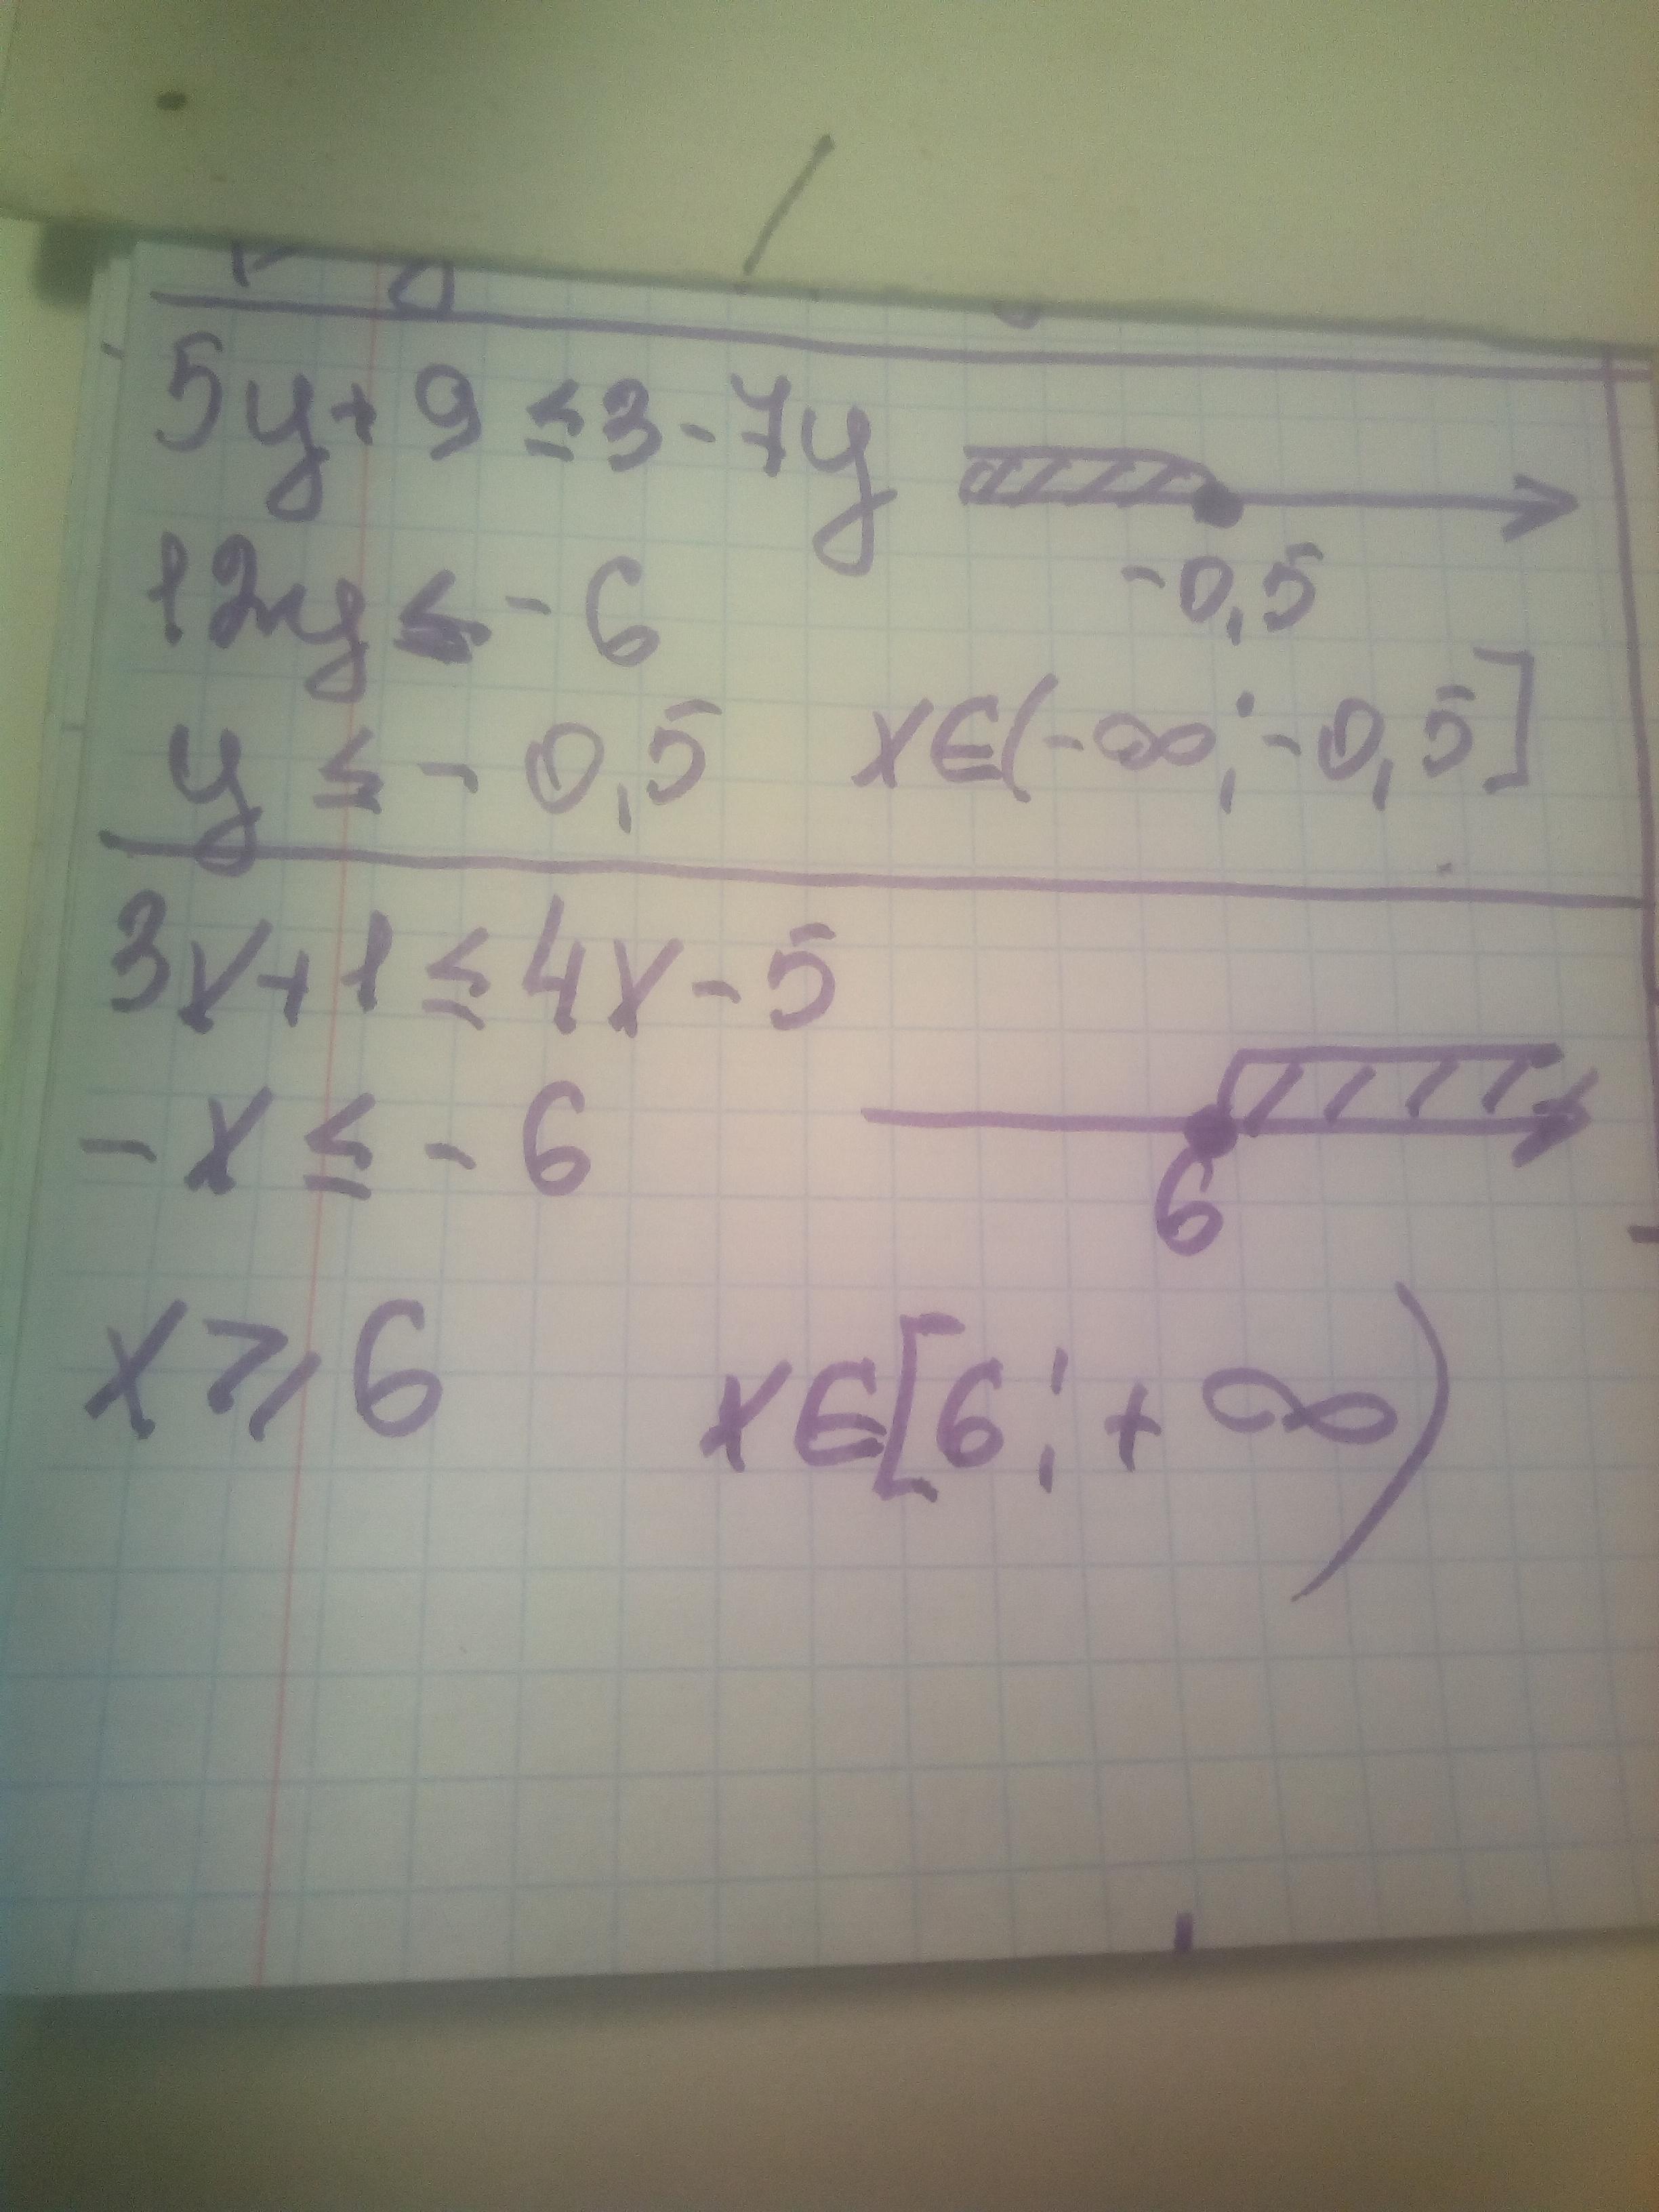 5y + 9 ≤ 3 - 7y
12y ≤ - 6
-0,5
y ≤ - 0,5
x∈(-∞; -0,5]
3x+1 ≤ 4x - 5
-x ≤ - 6
6
x ⩾ 6
x∈[6; + ∞)